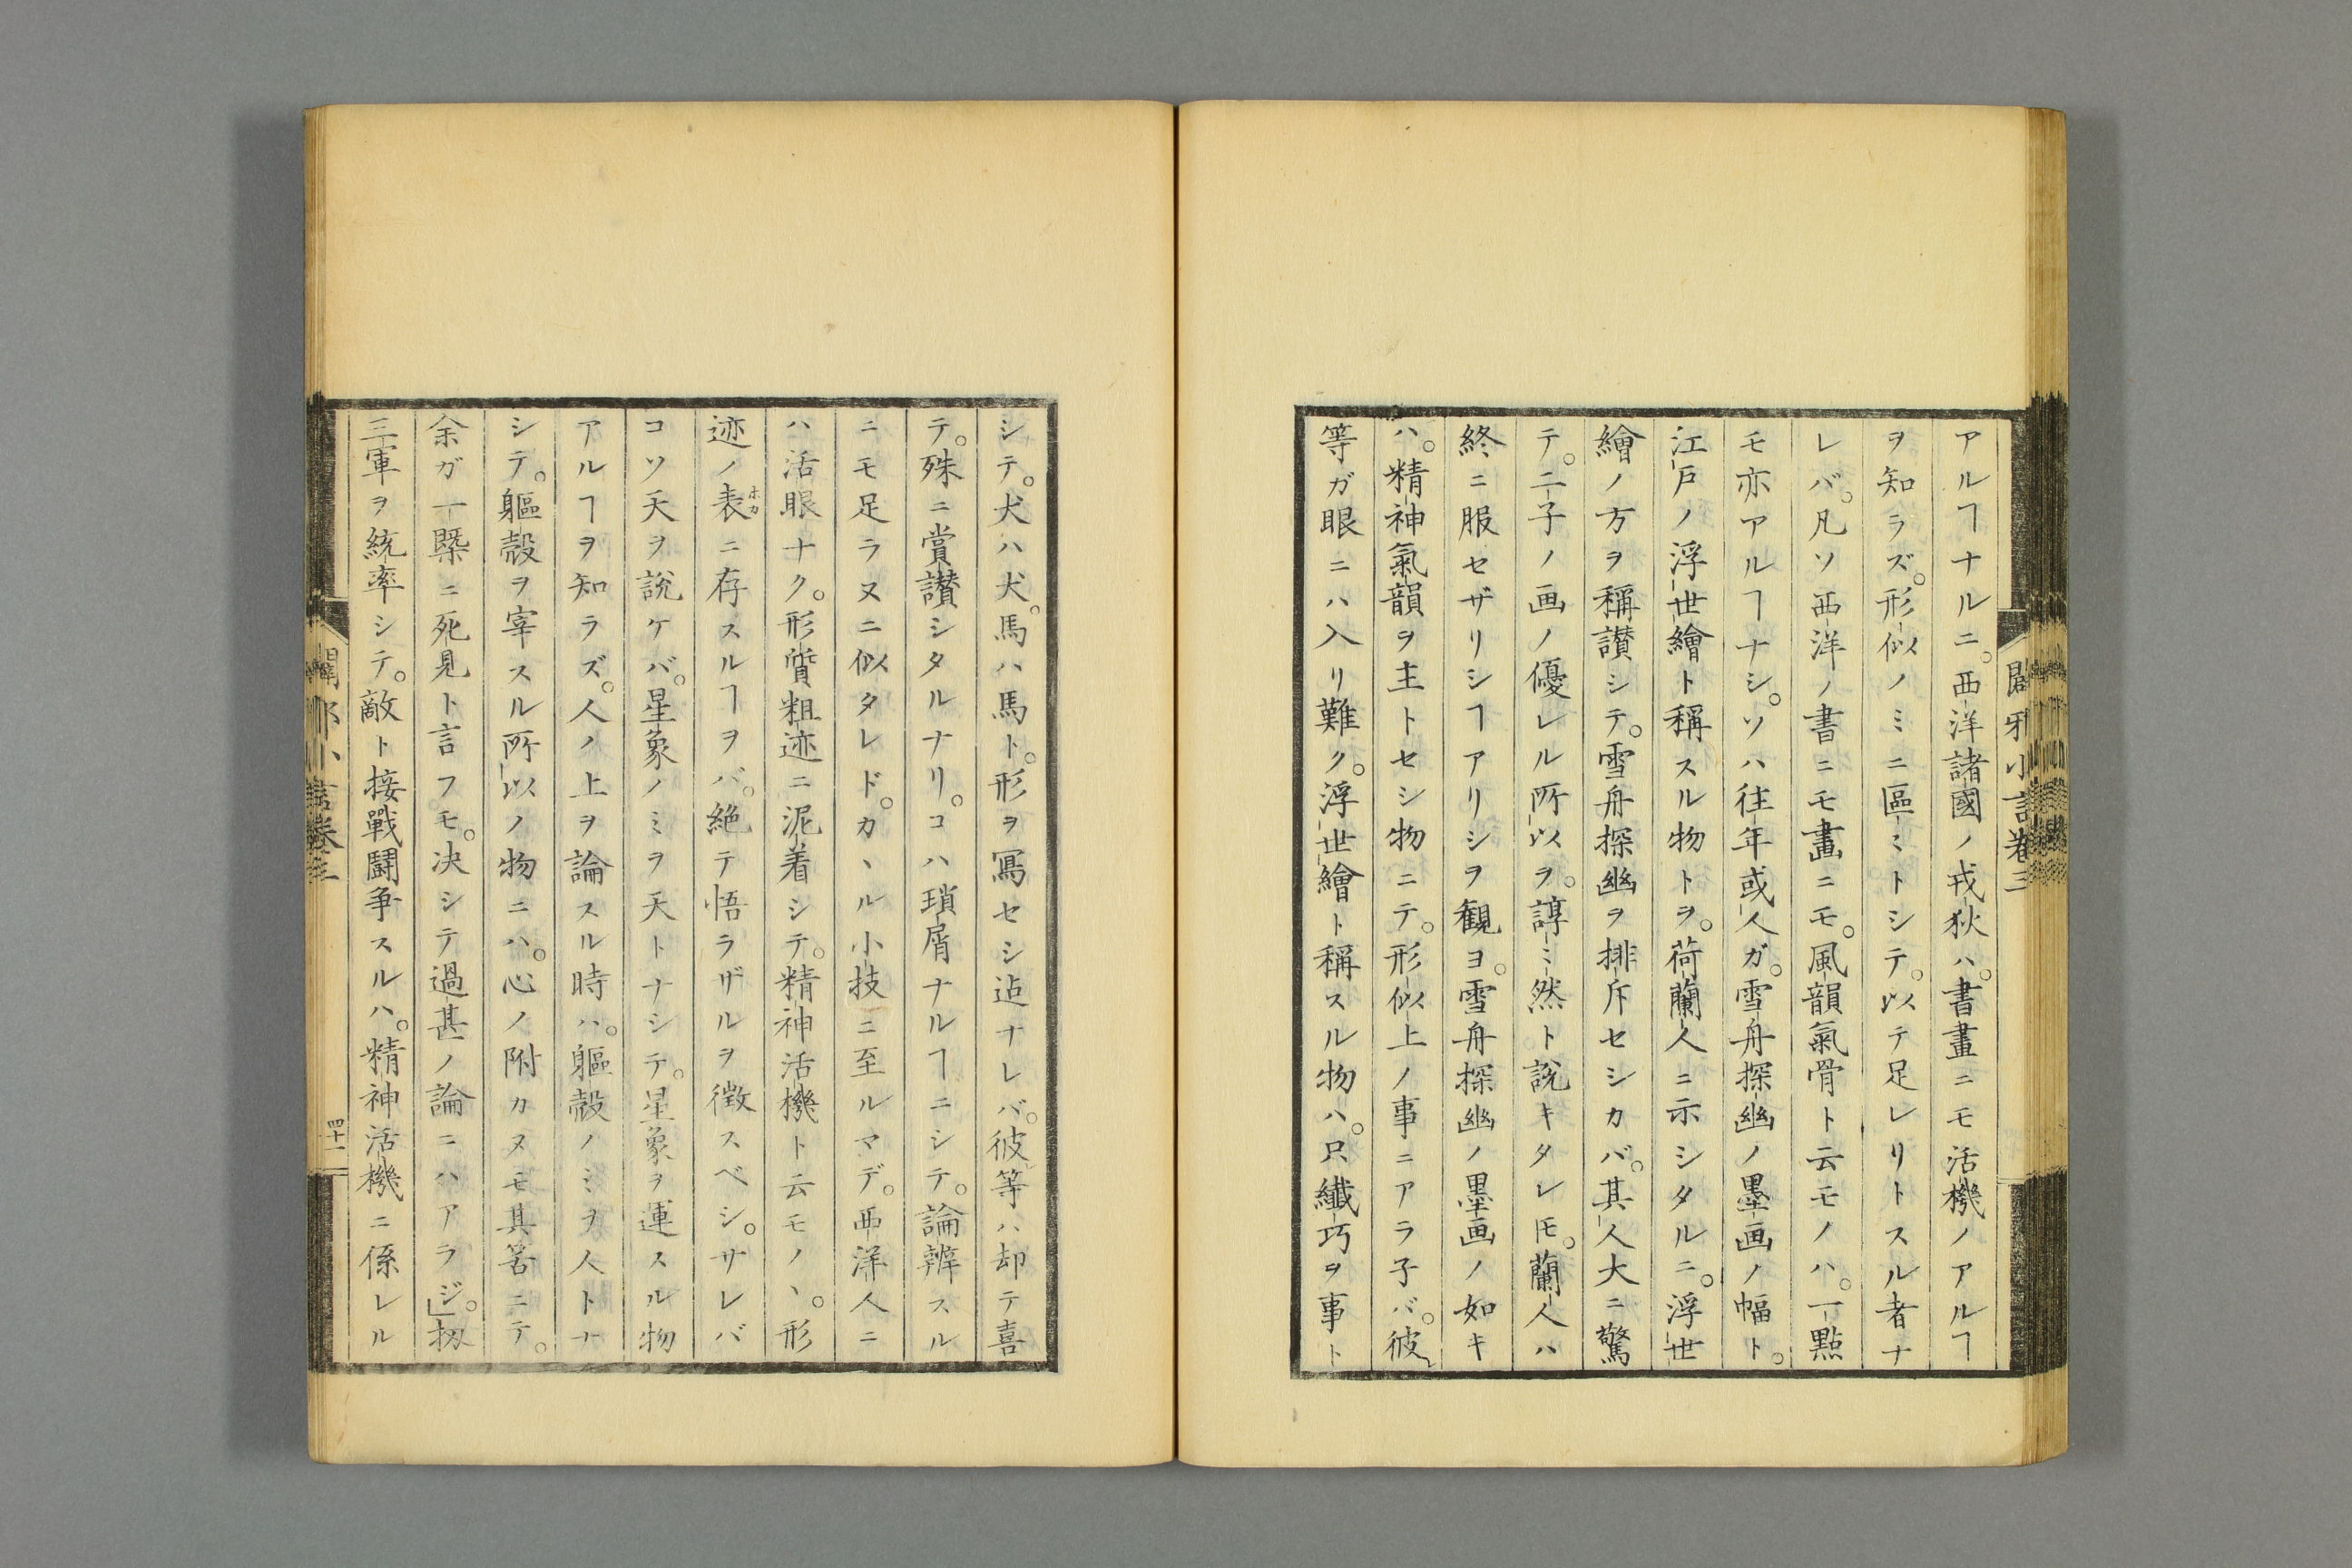 闢邪小言巻三
アルヿナルニ。西洋諸國ノ戎狄ハ。書畫ニモ活機ノアルヿ
ヲ知ラズ。形似ノミニ區ミトシテ。以テ足レリトスル者ナ
レバ。凡ソ西洋ノ書ニモ畫ニモ。風韻氣骨ト云モノハ。一點
モ亦アルヿナシ。ソハ往年或人ガ。雪舟探幽ノ墨画ノ幅ト。
江戸ノ浮世繪ト稱スル物トヲ。荷蘭人ニ示シタルニ。浮世
繪ノ方ヲ稱讃シテ。雪舟探幽ヲ排斥セシカバ。其人大ニ驚
テ。二子ノ画ノ優レル所以ヲ。諄ミ然ト說キタレ𪜈。蘭人ハ
終ニ服セザリシヿアリシヲ観ヨ。雪舟探幽ノ墨画ノ如キ
ハ。精神氣韻ヲ主トセシ物ニテ。形似上ノ事ニアラ子バ。彼
等ガ眼ニハ入リ難ク。浮世繪ト稱スル物ハ。只纎巧ヲ事ト
シテ。犬ハ犬。馬ハ馬ト。形ヲ寫セシ迠ナレバ。彼等ハ却テ喜
テ。殊ニ賞讃シタルナリ。コハ瑣屑ナルヿニシテ。論辨スル
ニモ足ラヌニ似タレド。カヽル小技ニ至ルマデ。西洋人ニ
ハ活眼ナク。形質粗迹ニ泥着シテ。精神活機ト云モノヽ。形
迹ノ表ホカニ存スルヿヲバ。絶テ悟ラザルヲ徴スベシ。サレバ
コソ天ヲ說ケバ。星象ノミヲ天トナシテ。星象ヲ運スル物
アルヿヲ知ラズ。人ノ上ヲ論スル時ハ。軀殻ノミヲ人トナ
シテ。軀殻ヲ宰スル所以ノ物ニハ。心ノ附カヌモ其筈ニテ。
余ガ一槩ニ死見ト言フモ。决シテ過甚ノ論ニハアラジ。」扨
三軍ヲ統率シテ。敵ト接戰鬪争スルハ。精神活機ニ係レル
闢邪小言巻三
四十一